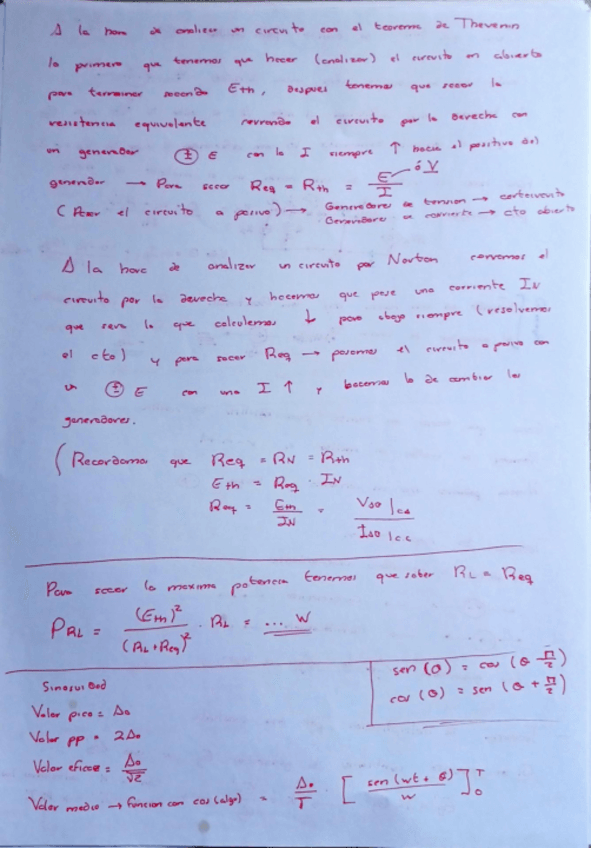 A la hora de analizar un circuito con el teorema de Thevenin
lo primero que tenemos que hacer (analizar) el circuito en abierto
para terminar sacando Eth, despues tenemos que sacar la
resistencia equivalente cerrando el circuito por la derecha con
un generador ± E con la I siempre ↑ hacia el positivo del
generador → Para sacar Req = Rth = E/I ó V
(Pasar el circuito a pasivo) → Generadores de tension → cortocircuito
Generadores de corriente → cto abierto
A la hora de analizar un circuito por Norton cerramos el
circuito por la derecha y hacemos que pase una corriente IN
que sera la que calculemos ↓ para abajo siempre (resolvemos
el cto) y para sacar Req → pasamos el circuito a pasivo con
un ± E con una I ↑ y hacemos lo de cambiar los
generadores.
(Recordamos que Req = RN = Rth
Eth = Req · IN
Req = Eth/IN = Vab|c.a / Iab|c.c
Para sacar la maxima potencia tenemos que saber RL = Req
PRL = (Eth)²/(RL+Req)² · RL = ... W
sen (θ) = cos (θ - π/2)
cos (θ) = sen (θ + π/2)
Sinosuidad
Valor pico = Ao
Valor pp = 2Ao
Valor eficaz = Ao/√2
Valor medio → funcion con cos (algo) = Ao/T [sen(wt + θ)/w]₀ᵀ